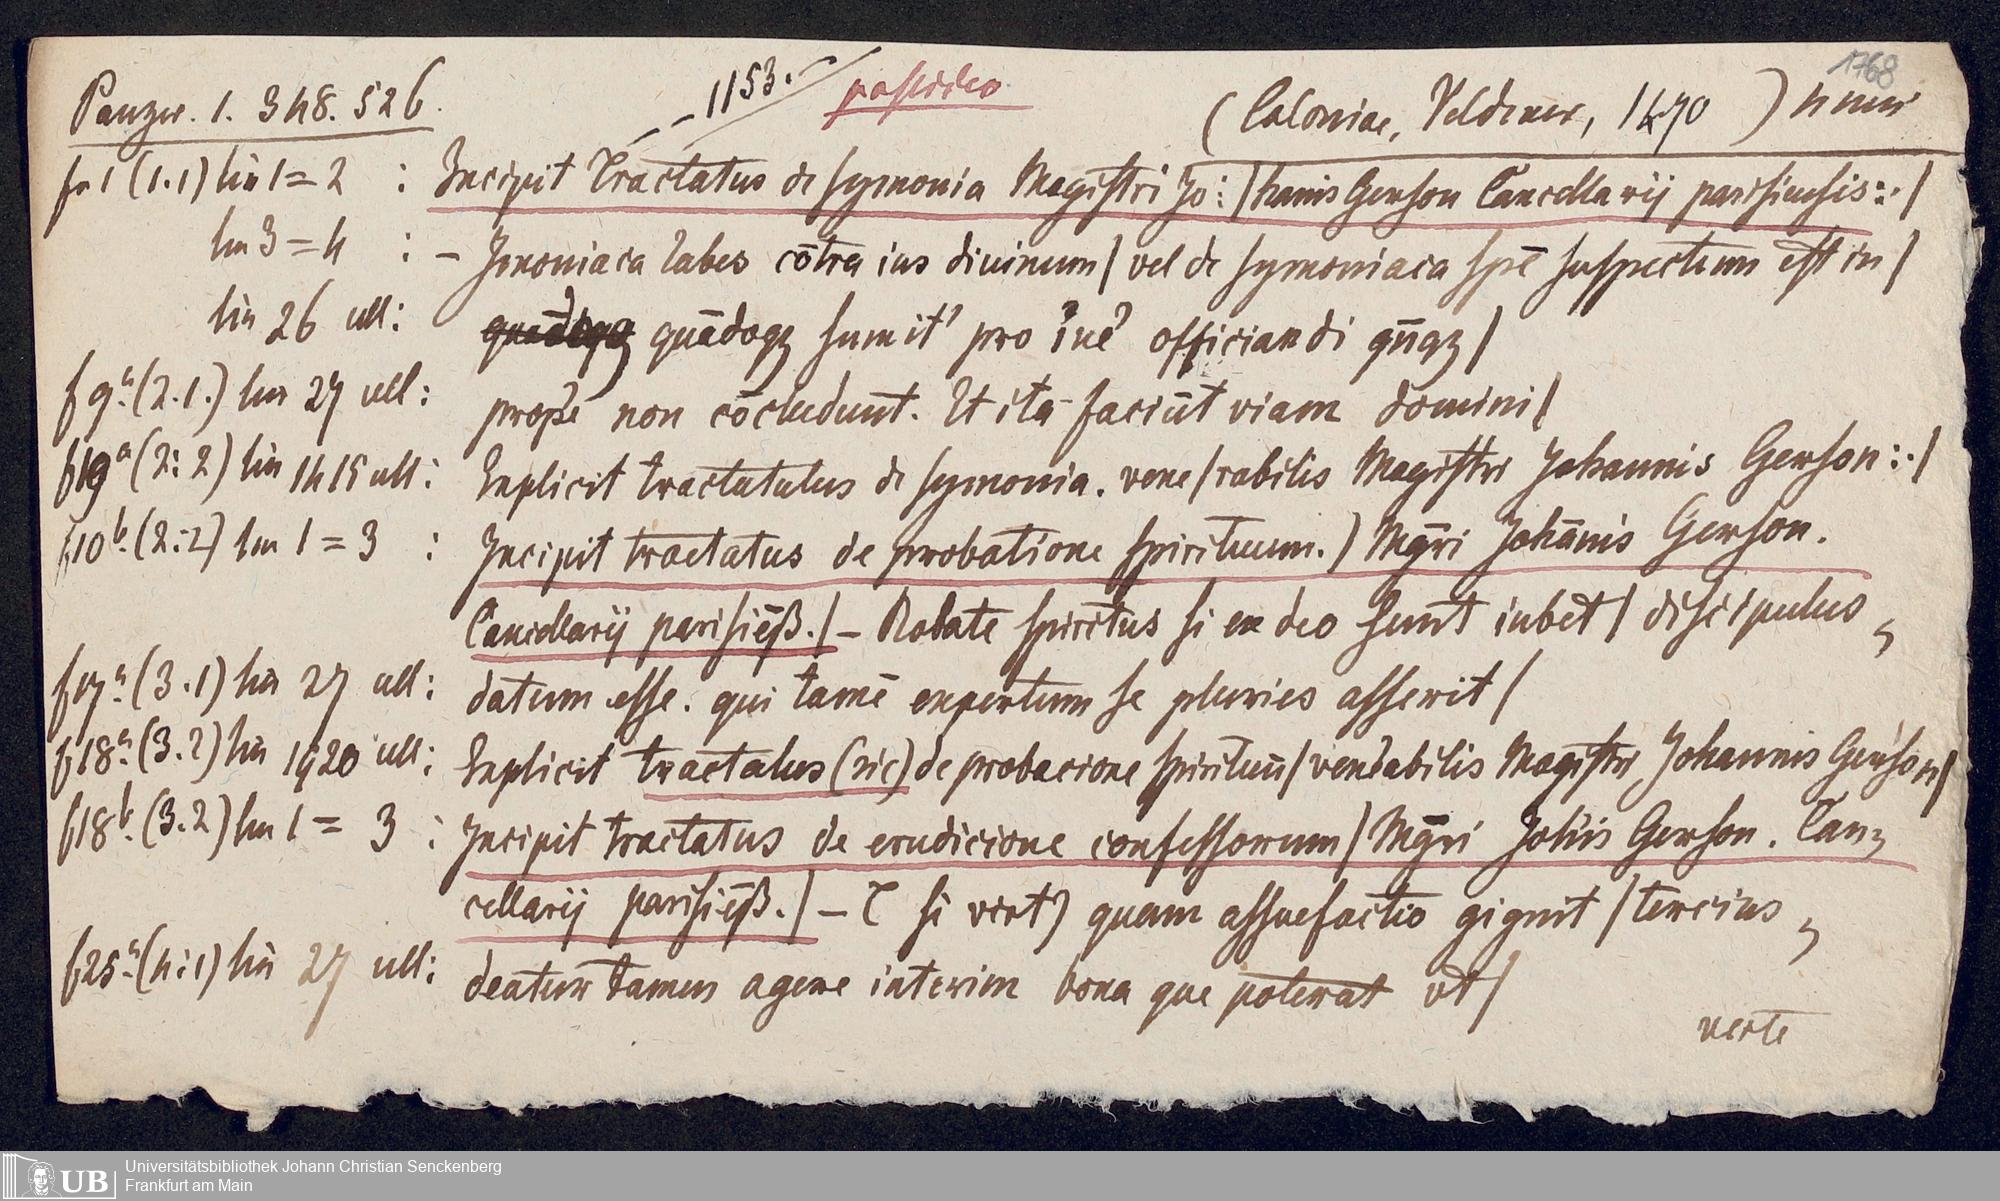 1768
Panzer. 1. 348. 526. 1153. possideo (Coloniae, Veldener, 1470) 4 min
f 1 (1.1) lin 1=2 : Incipit Tractatus de symonia Magistri Jo: / hannis Gerson Cancellarij parisiensis:·/
lin 3=4 : – Jmoniaca labes cōtra ius diuinum/ vel de symoniaca spē suspectum est in/
lin 26 ult: quādoqz sumit' pro officiandi qn̄qz/
f 9a (2.1.) lin 27 ult: non cōcludunt. Et ita faciūt viam domini/
f 19a (2:2) lin 14 15 ult: Explicit tractatulus de symonia. vene/rabilis Magistri Johannis Gerson:·/
f 10b (2:2) lin 1=3 : Incipit tractatus de probatione spirituum.) Mgr̄i Johānis Gerson.
Cancellarij parisiēß./ – Robate spiritus si ex deo sunt iubet/ discipulus,
f 17a (3.1) lin 27 ult: datum esse. qui tamē expertum se pluries asserit/
f 18a (3.2) lin 19 20 ult: Explicit tractalus (sic) de probacione spirituū/ venerabilis Magistri Johannis Gerson/
f 18b (3.2) lin 1= 3 : Incipit tractatus de erudicione confessorum/ Mgr̄i Joh'is Gerson. Can,
cellarij parisiēß./ – C si virt) quam assuefactio gignit /tercius,
f 25a (4:1) lin 27 ult: deatur tamen agere interim bona que poterat vt/
verte
UB Universitätsbibliothek Johann Christian Senckenberg
Frankfurt am Main